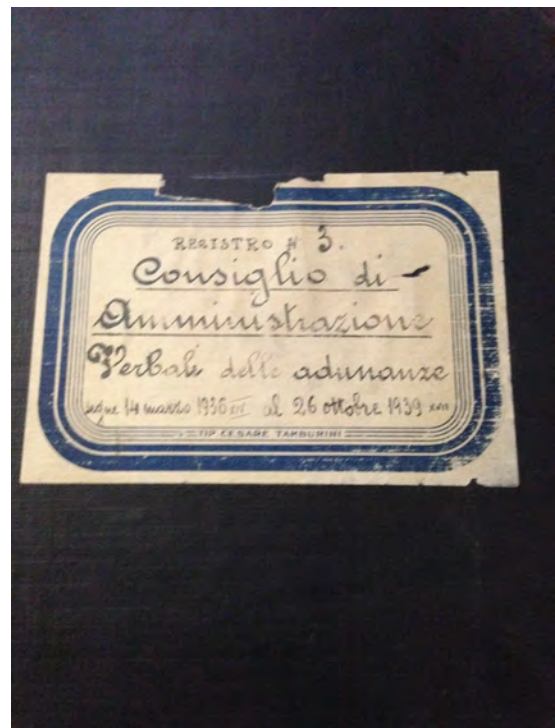 REGISTRO N 3.
Consiglio di
Amministrazione
Verbale delle adunanze
segue 14 marzo 1936 XIV al 26 ottobre 1939 XVII
TIP. CESARE TAMBURINI